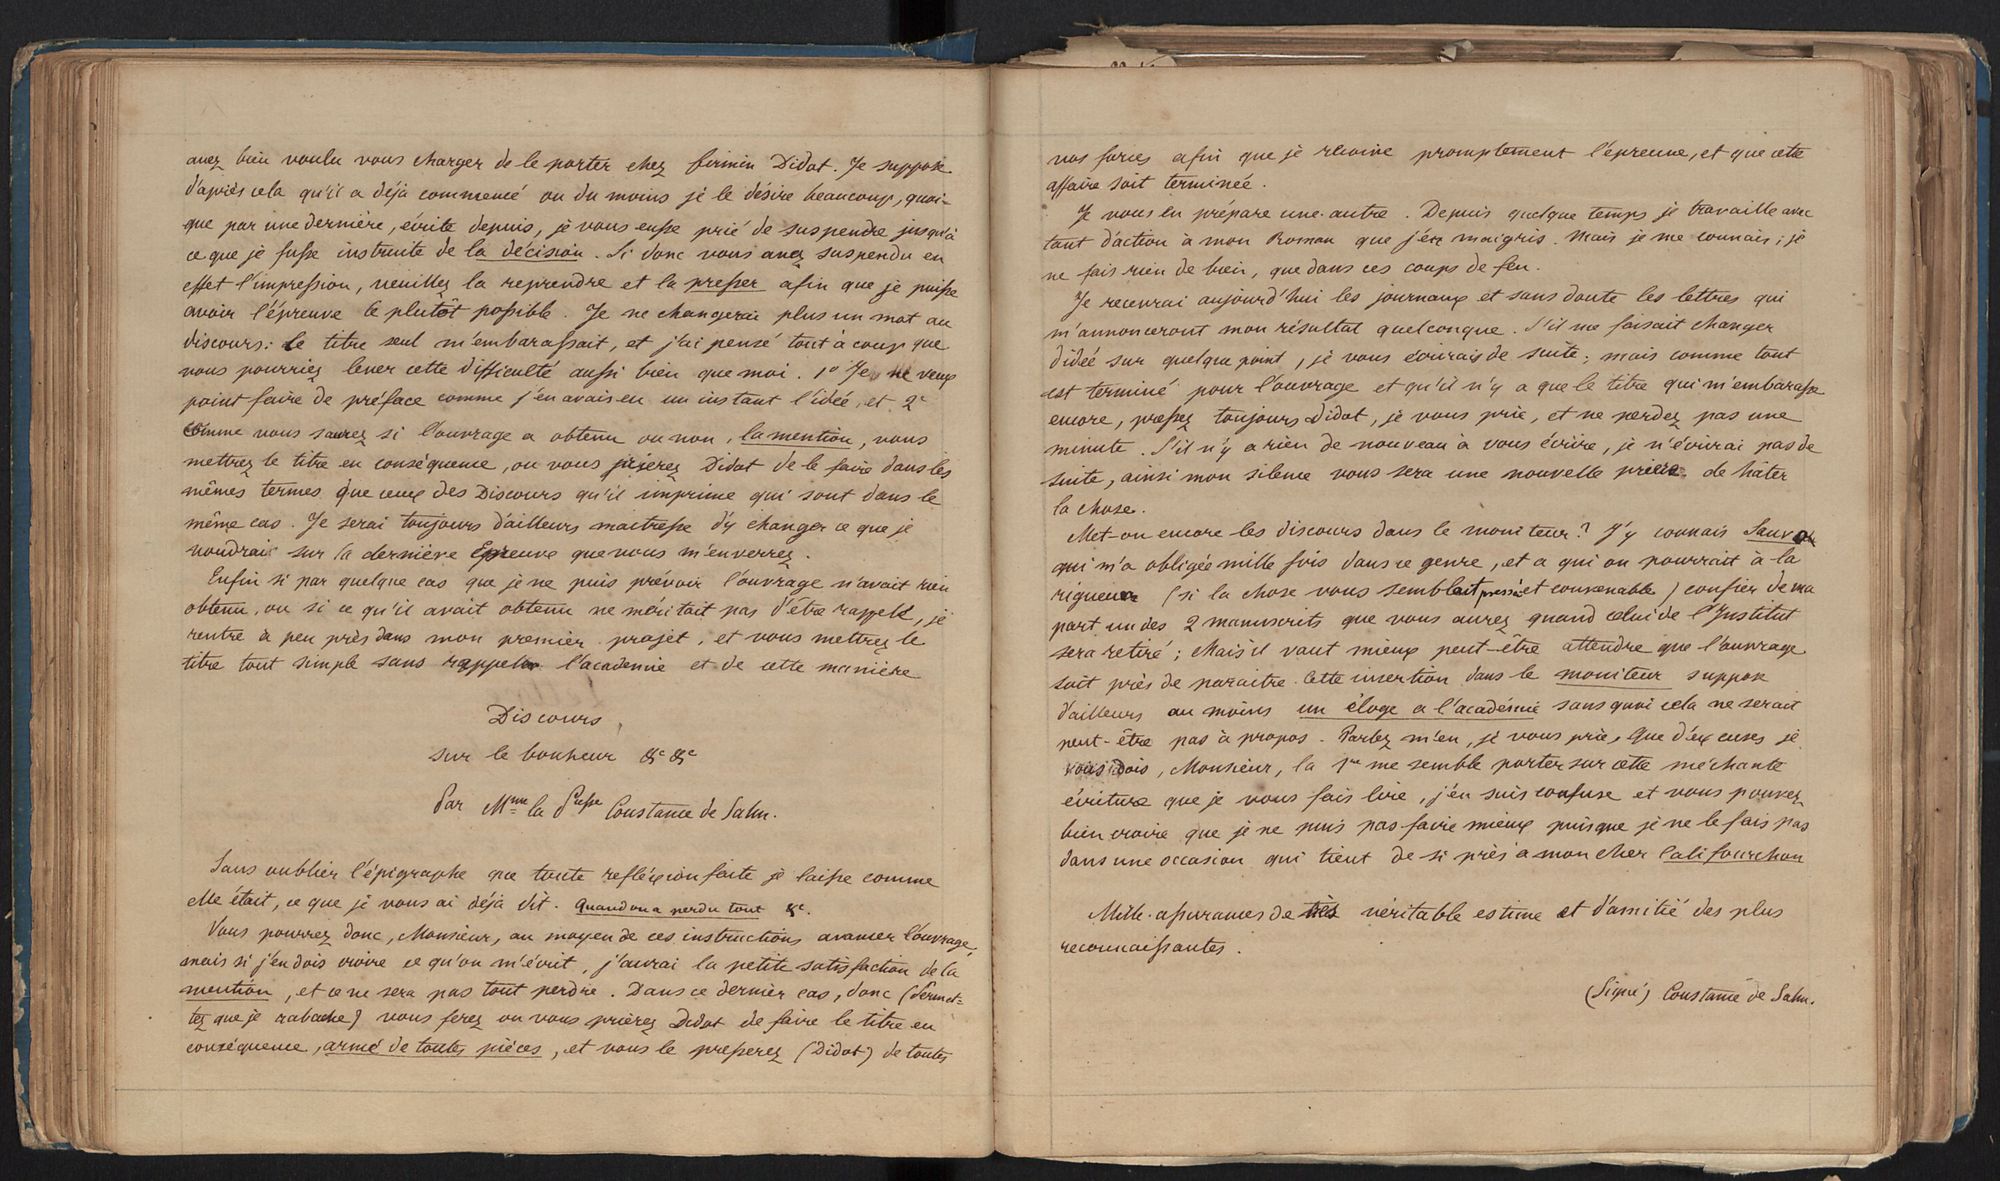 avez bien voulu vous charger de le porter chez firmin Didot. Je suppose
d'après cela qu'il a déjà commencé ou du moins je le désire beaucoup, quoi-
que par une dernière, écrite depuis, je vous eusse prié de suspendre jusqu'à
ce que je fusse instruite de la décision. Si donc vous avez suspendu en
effet l'impression, veuillez la reprendre et la presser afin que je puisse
avoir l'épreuve le plutôt possible. Je ne changerai plus un mot au
discours: le titre seul m'embarassait, et j'ai pensé tout à coup que
vous pourriez lever cette difficulté aussi bien que moi. 1º Je ne veux
point faire de préface comme j'en avais eu un instant l'idée, et 2º
comme vous saurez si l'ouvrage a obtenu ou non, la mention, vous
mettrez le titre en conséquence, ou vous prierez Didot de le faire dans les
mêmes termes que ceux des Discours qu'il imprime qui sont dans le
même cas. Je serai toujours d'ailleurs maitresse d'y changer ce que je
voudrai sur la dernière Epreuve que vous m'enverrez.
Enfin si par quelque cas que je ne puis prévoir l'ouvrage n'avait rien
obtenu, ou si ce qu'il avait obtenu ne méritait pas d'être rappelé, je
rentre à peu près dans mon premier projet, et vous mettrez le
titre tout simple sans rappeler l'academie et de cette manière
Discours
sur le bonheur &c &c
Par Mme la Psse Constance de Salm.
Sans oublier l'épigraphe que toute refléxion faite je laisse comme
elle était, ce que je vous ai déjà dit. Quand on a perdu tout &c.
Vous pourrez donc, Monsieur, au moyen de ces instructions avancer l'ouvrage,
mais si j'en dois croire ce qu'on m'écrit, j'aurai la petite satisfaction de la
mention, et ce ne sera pas tout perdre. Dans ce dernier cas, donc (Permet-
tez que je rabache) vous ferez ou vous prierez Didot de faire le titre en
conséquence, armé de toutes pièces, et vous le presserez (Didot) de toutes
vos forces afin que je recoive promptement l'épreuve, et que cette
affaire soit terminée.
Je vous en prépare une autre. Depuis quelque temps je travaille avec
tant d'action à mon Roman que j'en maigris. Mais je me connais; je
ne fais rien de bien, que dans ces coups de feu.
Je recevrai aujourd'hui les journaux et sans doute les lettres qui
m'annonceront mon résultat quelconque. S'il me faisait changer
d'idée sur quelque point, je vous écrirais de suite; mais comme tout
est terminé pour l'ouvrage et qu'il n'y a que le titre qui m'embarasse
encore, pressez toujours Didot, je vous prie, et ne perdez pas une
minute. S'il n'y a rien de nouveau à vous écrire, je n'écrirai pas de
suite, ainsi mon silence vous sera une nouvelle prière de hater
la chose.
Met-on encore les discours dans le moniteur? J'y connais Sauvo
qui m'a obligée mille fois dans ce genre, et a qui on pourrait à la
rigueur (si la chose vous semblait pressée et convenable) confier de ma
part un des 2 manuscrits que vous aurez quand celui de l'Institut
sera retiré; Mais il vaut mieux peut-être attendre que l'ouvrage
soit près de paraitre. Cette insertion dans le moniteur suppose
d'ailleurs au moins un éloge a l'académie sans quoi cela ne serait
peut-être pas à propos. Parlez m'en, je vous prie. Que d'excuses je
vous dois, Monsieur, la 1re me semble porter sur cette méchante
écriture que je vous fais lire, j'en suis confuse et vous pouvez
bien croire que je ne puis pas faire mieux puisque je ne le fais pas
dans une occasion qui tient de si près a mon cher Califourchon
Mille assurances de véritable estime et d'amitié des plus
reconnaissantes.
(Signé) Constance de Salm.